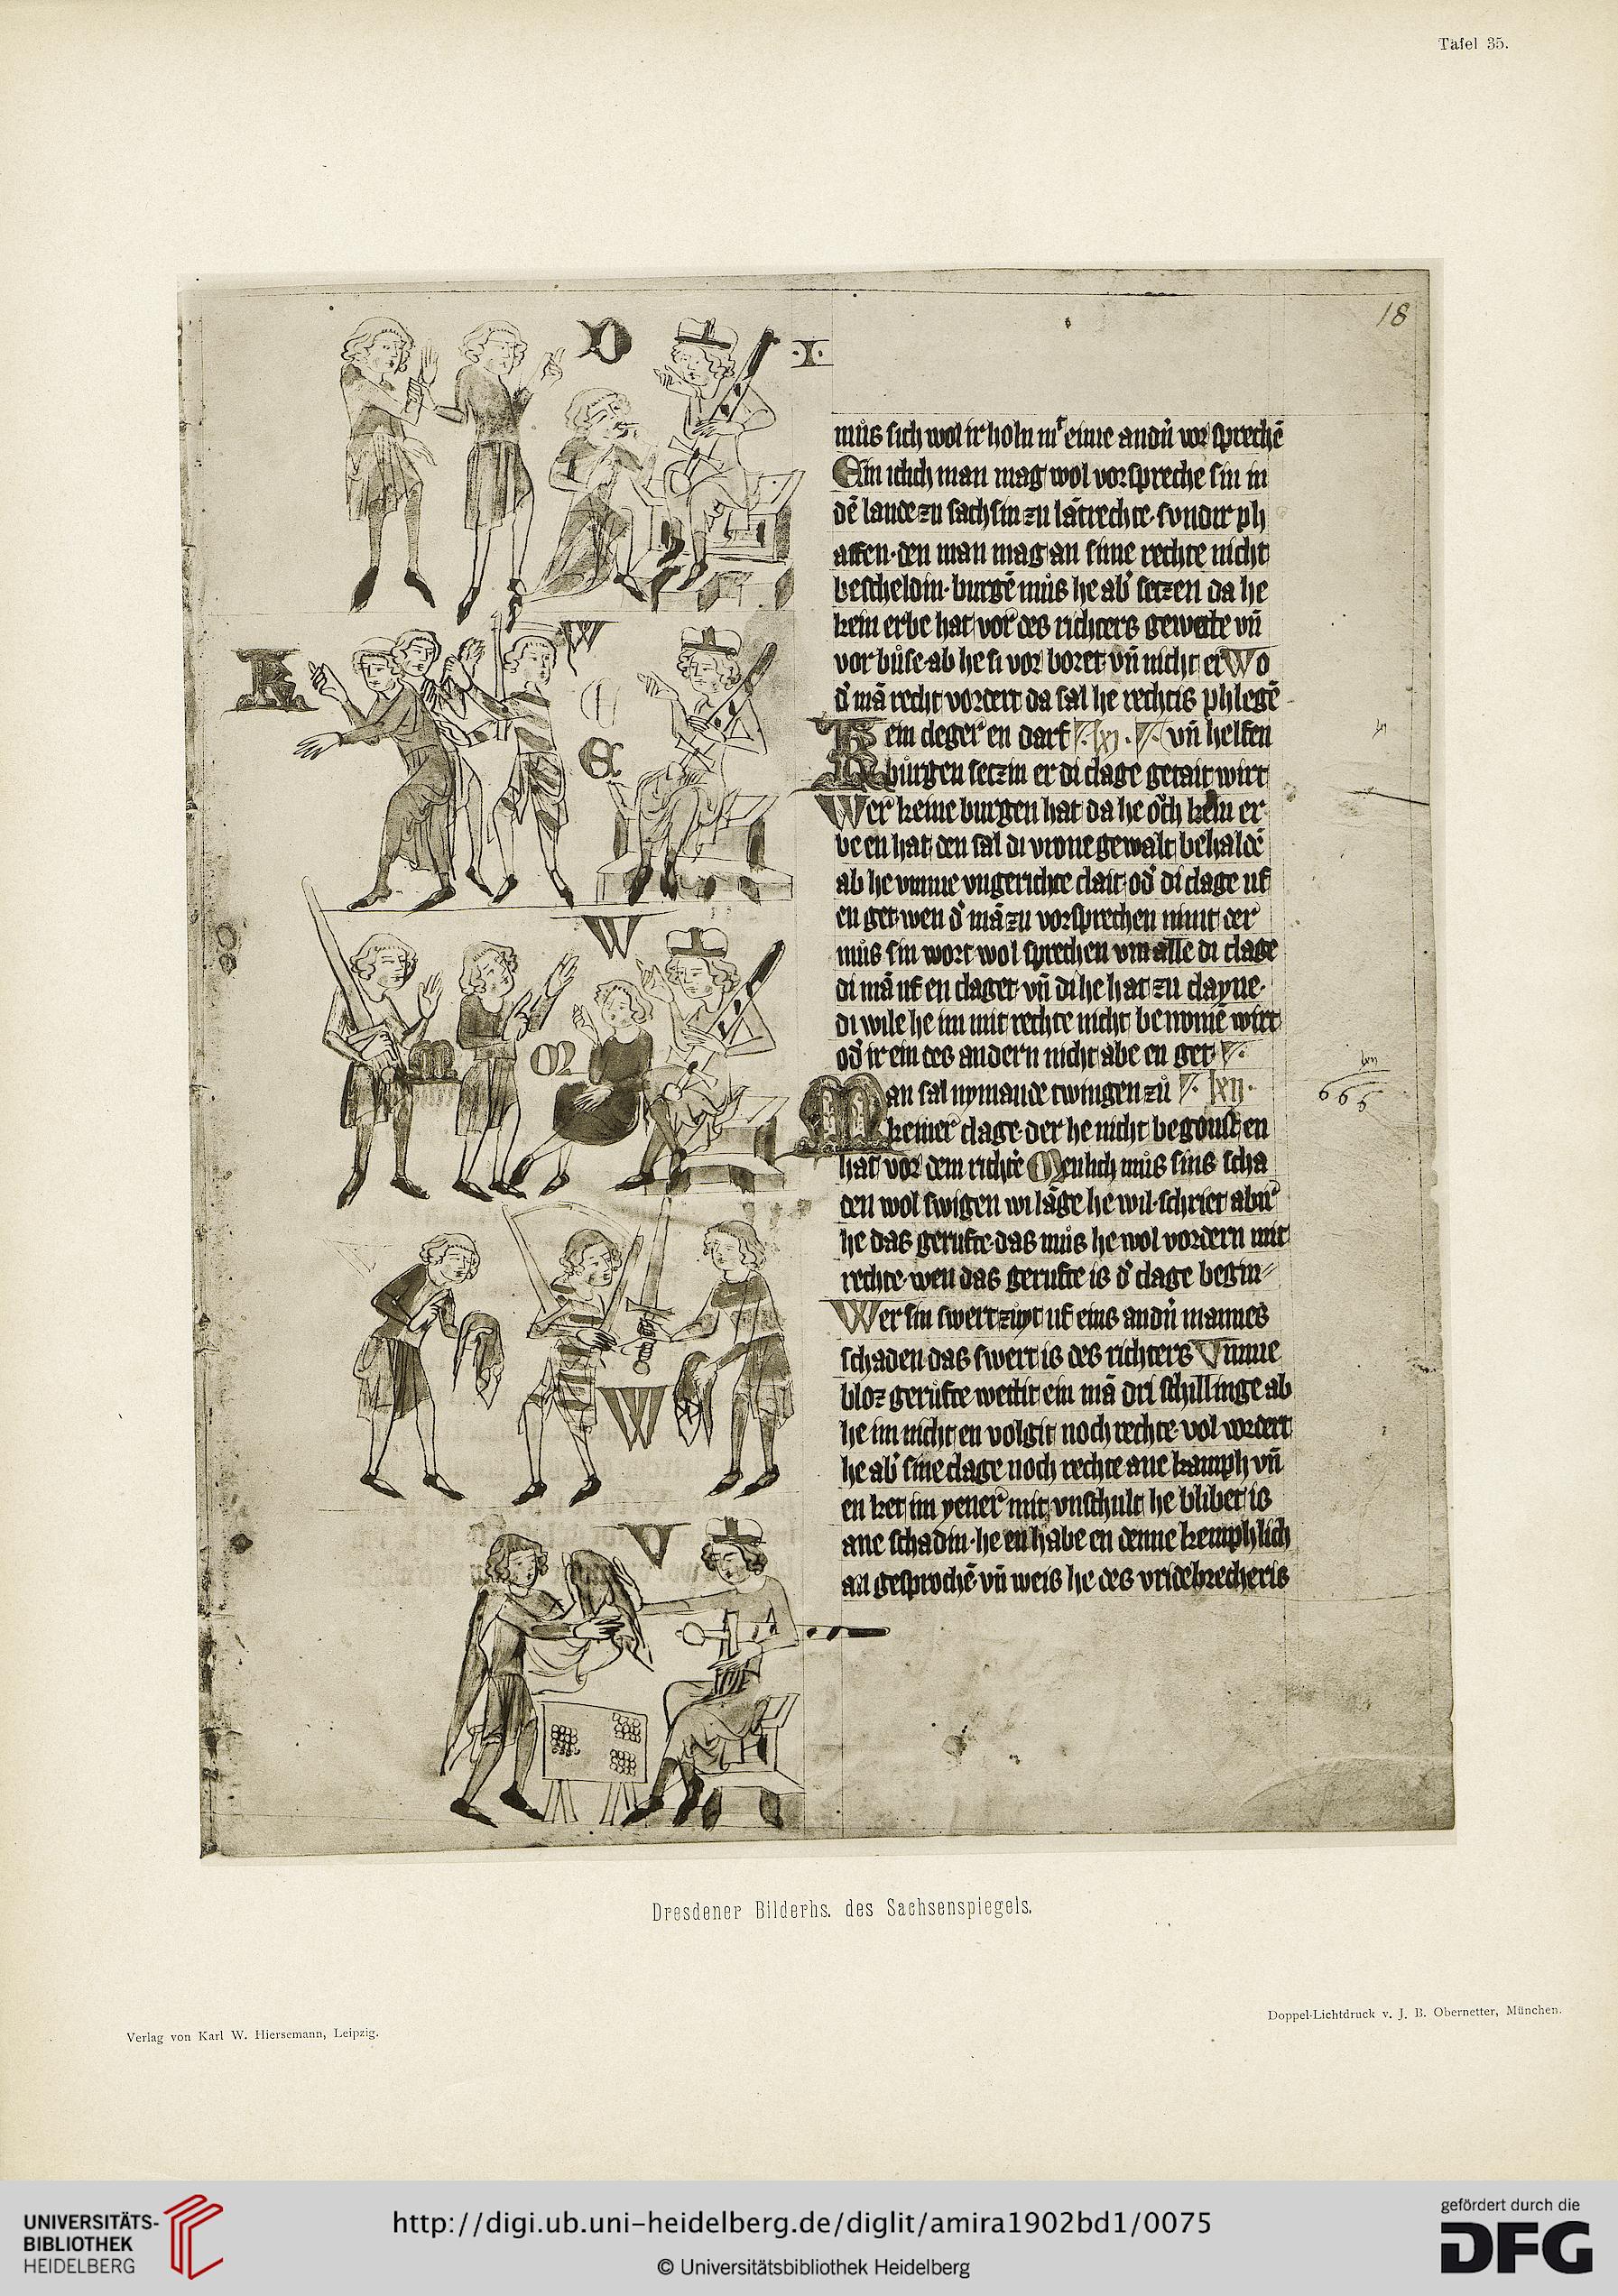 Tafel 35.
18
D
I
mus sich wol ir holn mit eime andn vor sprechē
Ein iclich man mag wol vorspreche sin in
dē lande zu sachsin zu lātrechte sundir ph
affen. den man mag an sime rechte nicht
bescheldin. burgē mus he ab setzen da he
kein erbe hat vor des richters gewette vn̄
vor buse ab he si vor boret vn̄ nicht er Wo
d' mā recht vordert da sal he rechtis phlegē
Kein cleger en darf lxj. vn̄ helfen
burgen setzin er di clage getait wirt
Wer keine burgen hat da he och kein er
be en hat den sal di vrone gewalt behaldē
ab he vmme vngerichte clait od' di clage uf
en get wen d' mā zu vorsprechen nimt der
mus sin wort wol sprechen vm alle di clage
di mā uf en claget vn̄ di he hat zu clayne.
di wile he im mit rechte nicht benomē wirt
od' ir ein des andern nicht abe en get
Man sal nymande twingen zu lxij.
keiner clage der he nicht begonst en
hat vor dem richtē Menlich mus sins scha
den wol swigen wi lāge he wil schriet abir
he das gerufte das mus he wol vordern mit
rechte wen das gerufte is d' clage begin
Wer sin swert ziyt uf eins andn mannes
schaden das swert is des richters Vmme
bloz gerufte wettit ein mā dri schillinge ab
he im nicht en volgit noch rechte vol vordert
he ab' sine clage noch rechte ane kamph vn̄
en ket im yener mit vnschult he blibet is
ane schadin. he en habe en denne kemphlich
an gesprochē vn̄ weis he des vridebrecheris
K
W
E
W
M
M
W
V
666
Dresdener Bilderhs. des Sachsenspiegels.
Verlag von Karl W. Hiersemann, Leipzig.
Doppel-Lichtdruck v. J. B. Obernetter, München.
UNIVERSITÄTS-
BIBLIOTHEK
HEIDELBERG
http://digi.ub.uni-heidelberg.de/diglit/amira1902bd1/0075
© Universitätsbibliothek Heidelberg
gefördert durch die
DFG